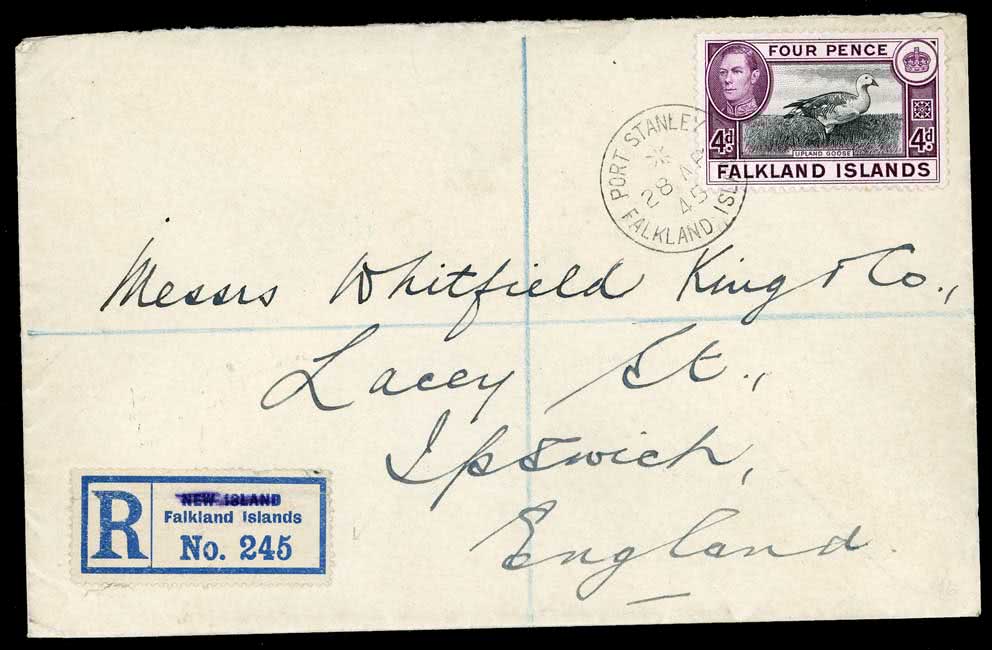 FOUR PENCE
4d
4d
UPLAND GOOSE
FALKLAND ISLANDS
PORT STANLEY
28 AP
45
FALKLAND ISL
Messrs Whitfield King & Co.,
Lacey St.,
Ipswich,
England
R
NEW ISLAND
Falkland Islands
No. 245